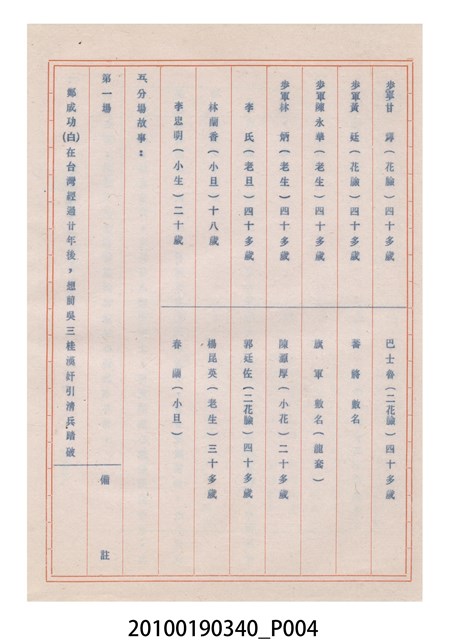 步軍甘 輝（花臉）四十多歲 巴士魯（二花臉）四十多歲
步軍黃 廷（花臉）四十多歲 番將 數名
步軍陳永華（老生）四十多歲 旗軍 數名（龍套）
步軍林 炳（老生）四十多歲 陳源厚（小花）二十多歲
李 氏（老旦）四十多歲 郭廷佐（二花臉）四十多歲
林蘭香（小旦）十八歲 楊昆英（老生）三十多歲
李忠明（小生）二十歲 春 蘭（小旦）
五、分場故事：
第一場 備註
鄭成功(白)在台灣經過廿年後，想前吳三桂漢奸引清兵踏破
20100190340_P004